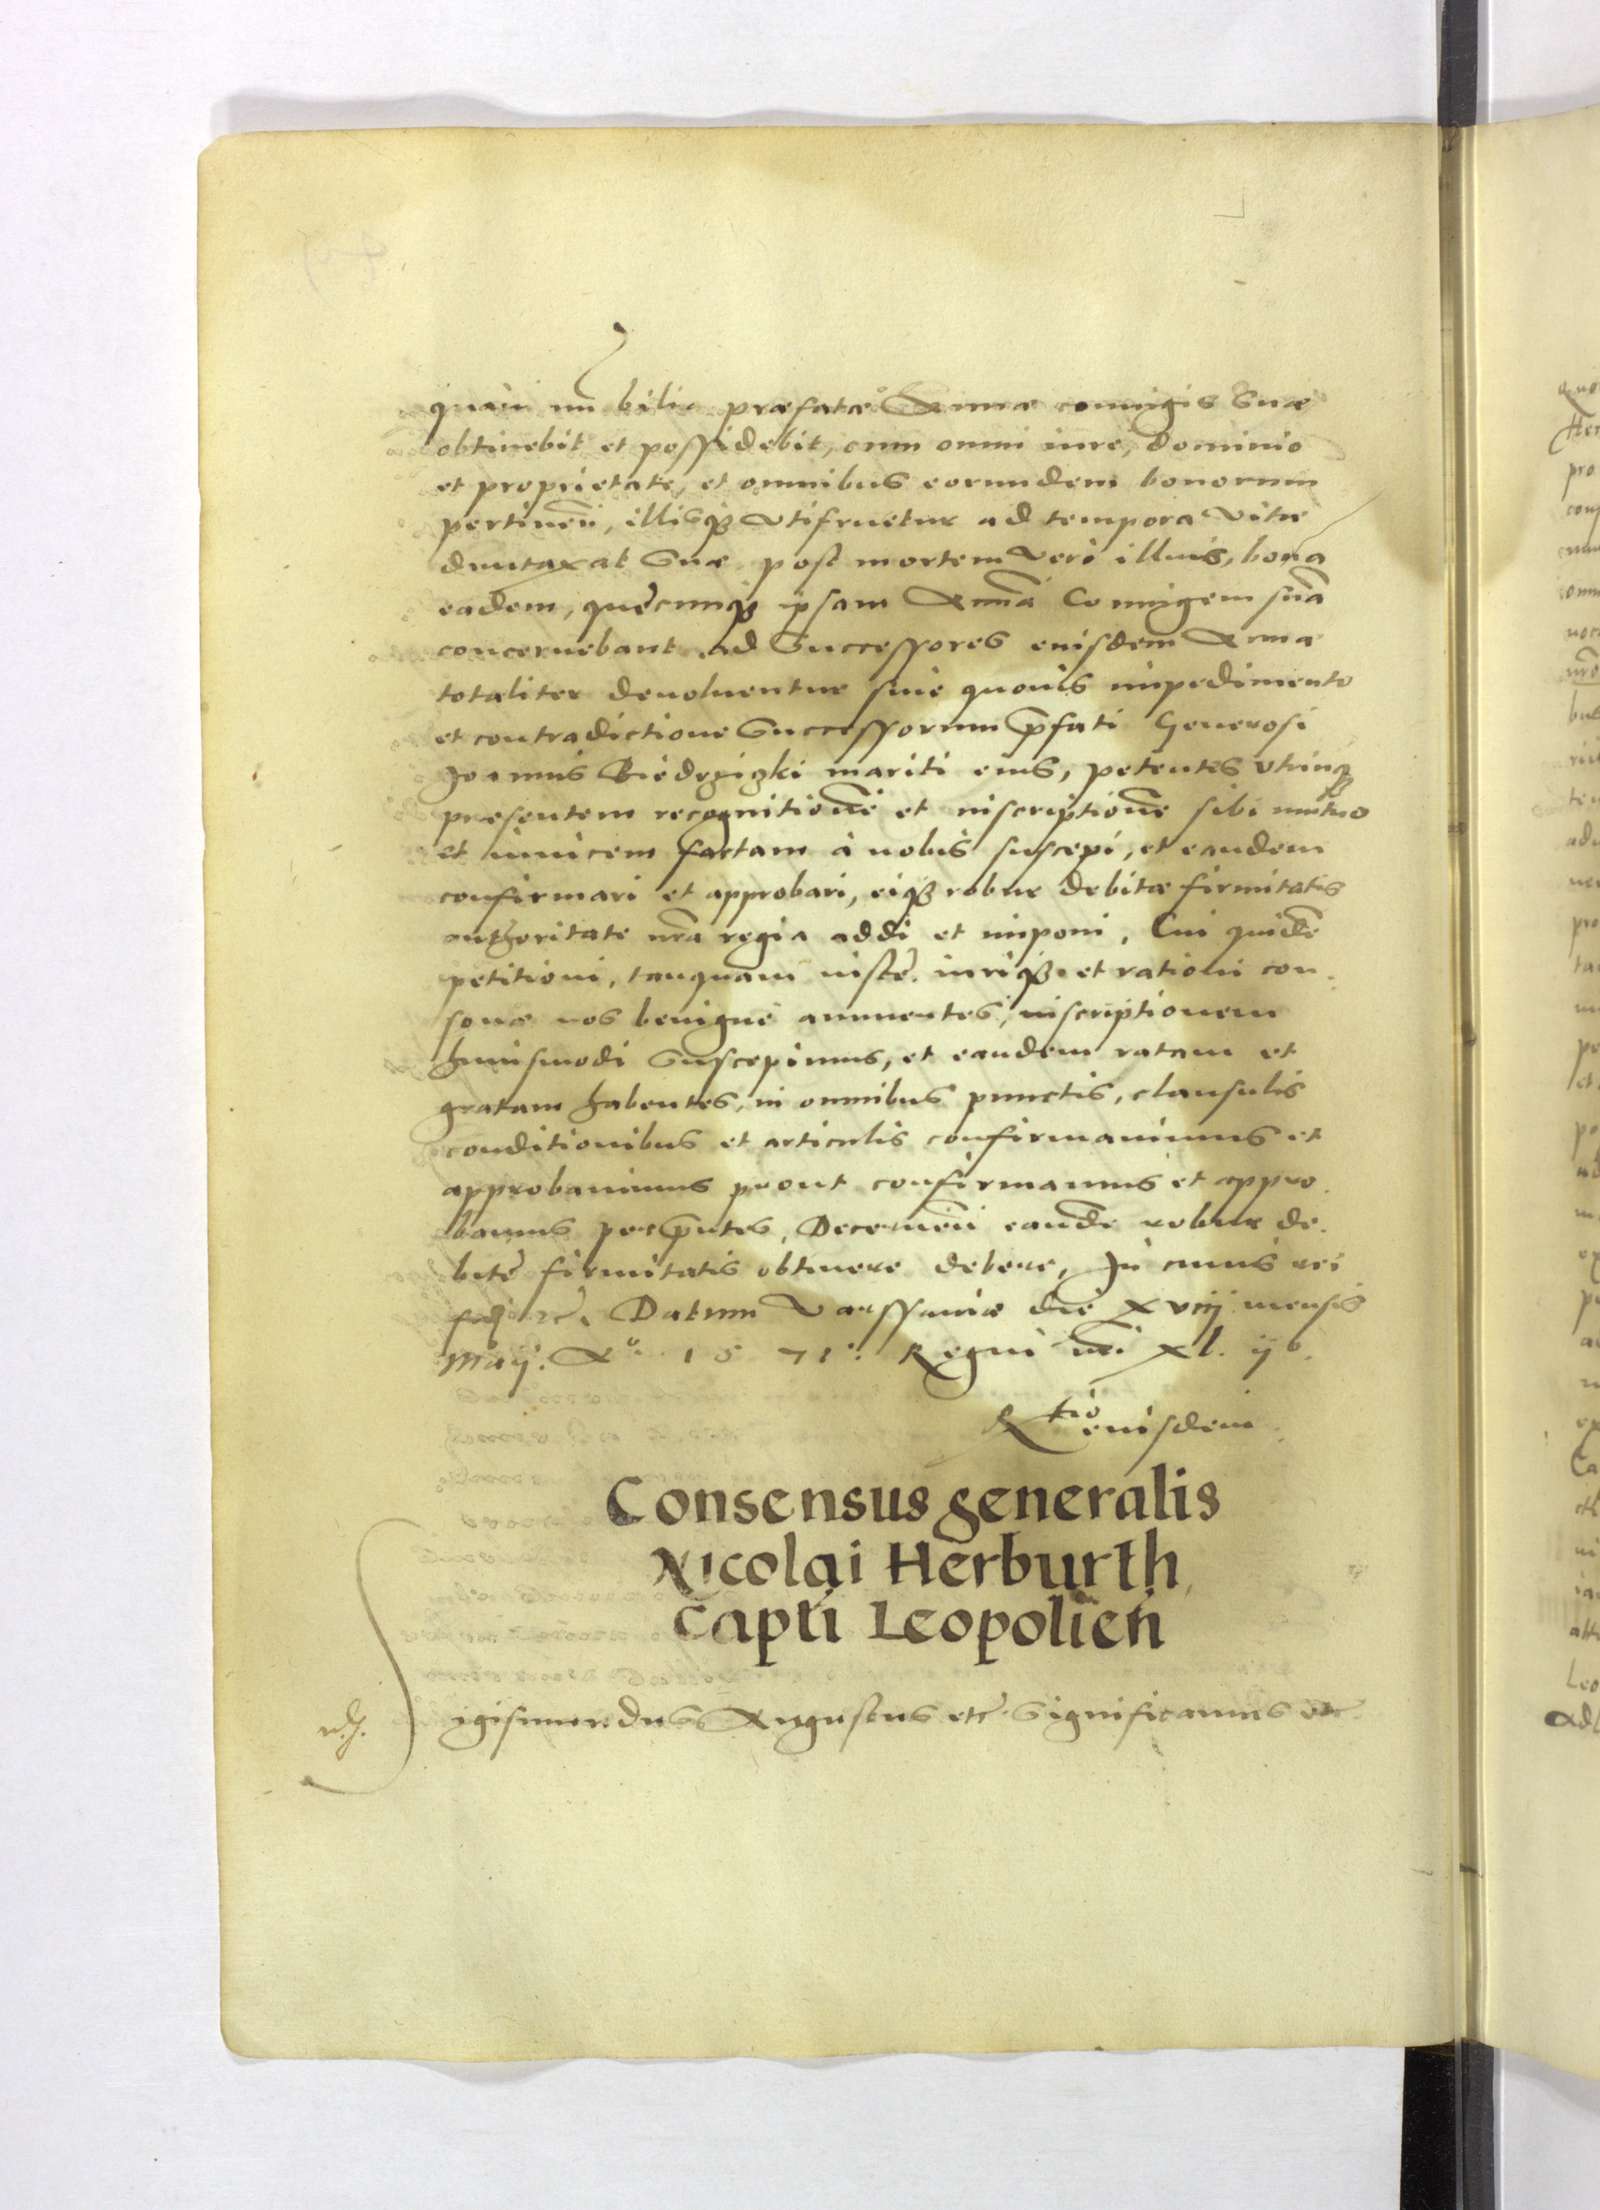 quam mobilia præfatæ Annæ coniugis suæ
obtinebit et possidebit, cum omni iure, dominio
et proprietate, et omnibus eorundem bonorum
pertineñ, illisq3 vtifruetur ad tempora vitæ
duntaxat suæ, post mortem vero illius, bona
eadem, quęcunq3 ipsam Annā Coniugem suā
concernebant ad Successores eiusdem Annæ
totaliter deuoluentur sine quouis impedimento
et contradictione Successorum p̄fati Generosi
Joannis Biedrzizki mariti eius, petentes vtrinq3
presentem recognitionē et inscriptionē sibi mutuo
et inuicem factam à nobis suscepi, et eandem
confirmari et approbari, eiq3 robur debitæ firmitatis
authoritate nr̄a regia addi et imponi, Cui quidē
petitioni, tanquam iustę, iuriq3 et rationi con-
sonæ nos benigne annuentes, inscriptionem
huiusmodi suscepimus, et eandem ratam et
gratam habentes, in omnibus punctis, clausulis
conditionibus et articulis confirmauimus et
approbauimus prout confirmamus et appro-
bamus per p̄ntes, Decerneñ eandē robur de-
bitę firmitatis obtinere debere, In cuius rei
fidē etc. Datum Varssauiæ die xviij mensis
Maij. Aº 1571º. Regni nr̄i xl. ijº.
Rtio eiusdem
Consensus generalis
Nicolai Herburth
Capti Leopolień
Sigismundus Augustus etc Significamus etc